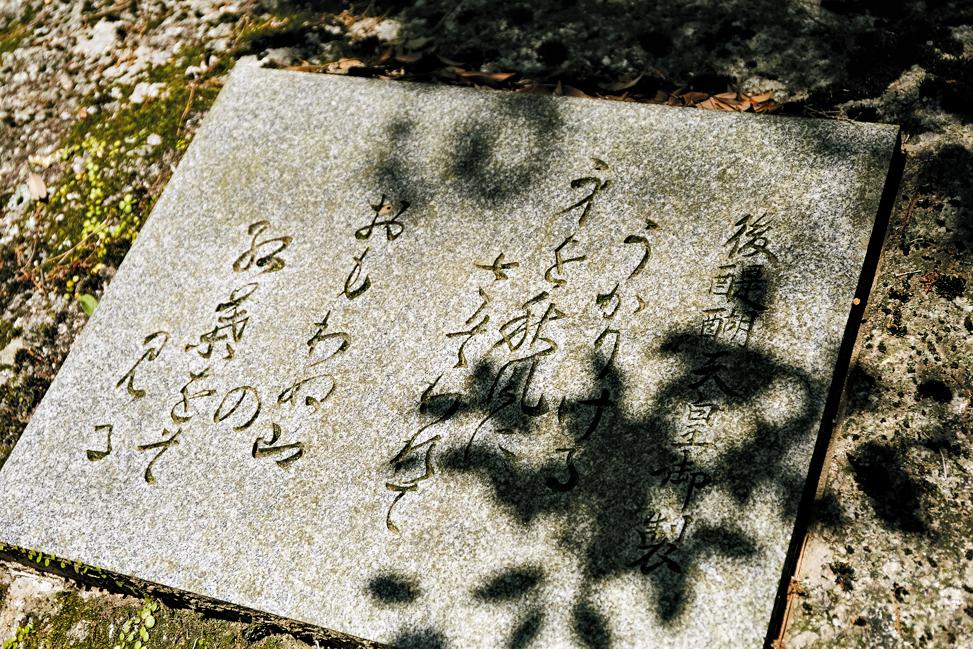 後醍醐天皇御製
うかりける
身を秋風に
さそはれて
おもわぬ山の
紅葉をそ
見る